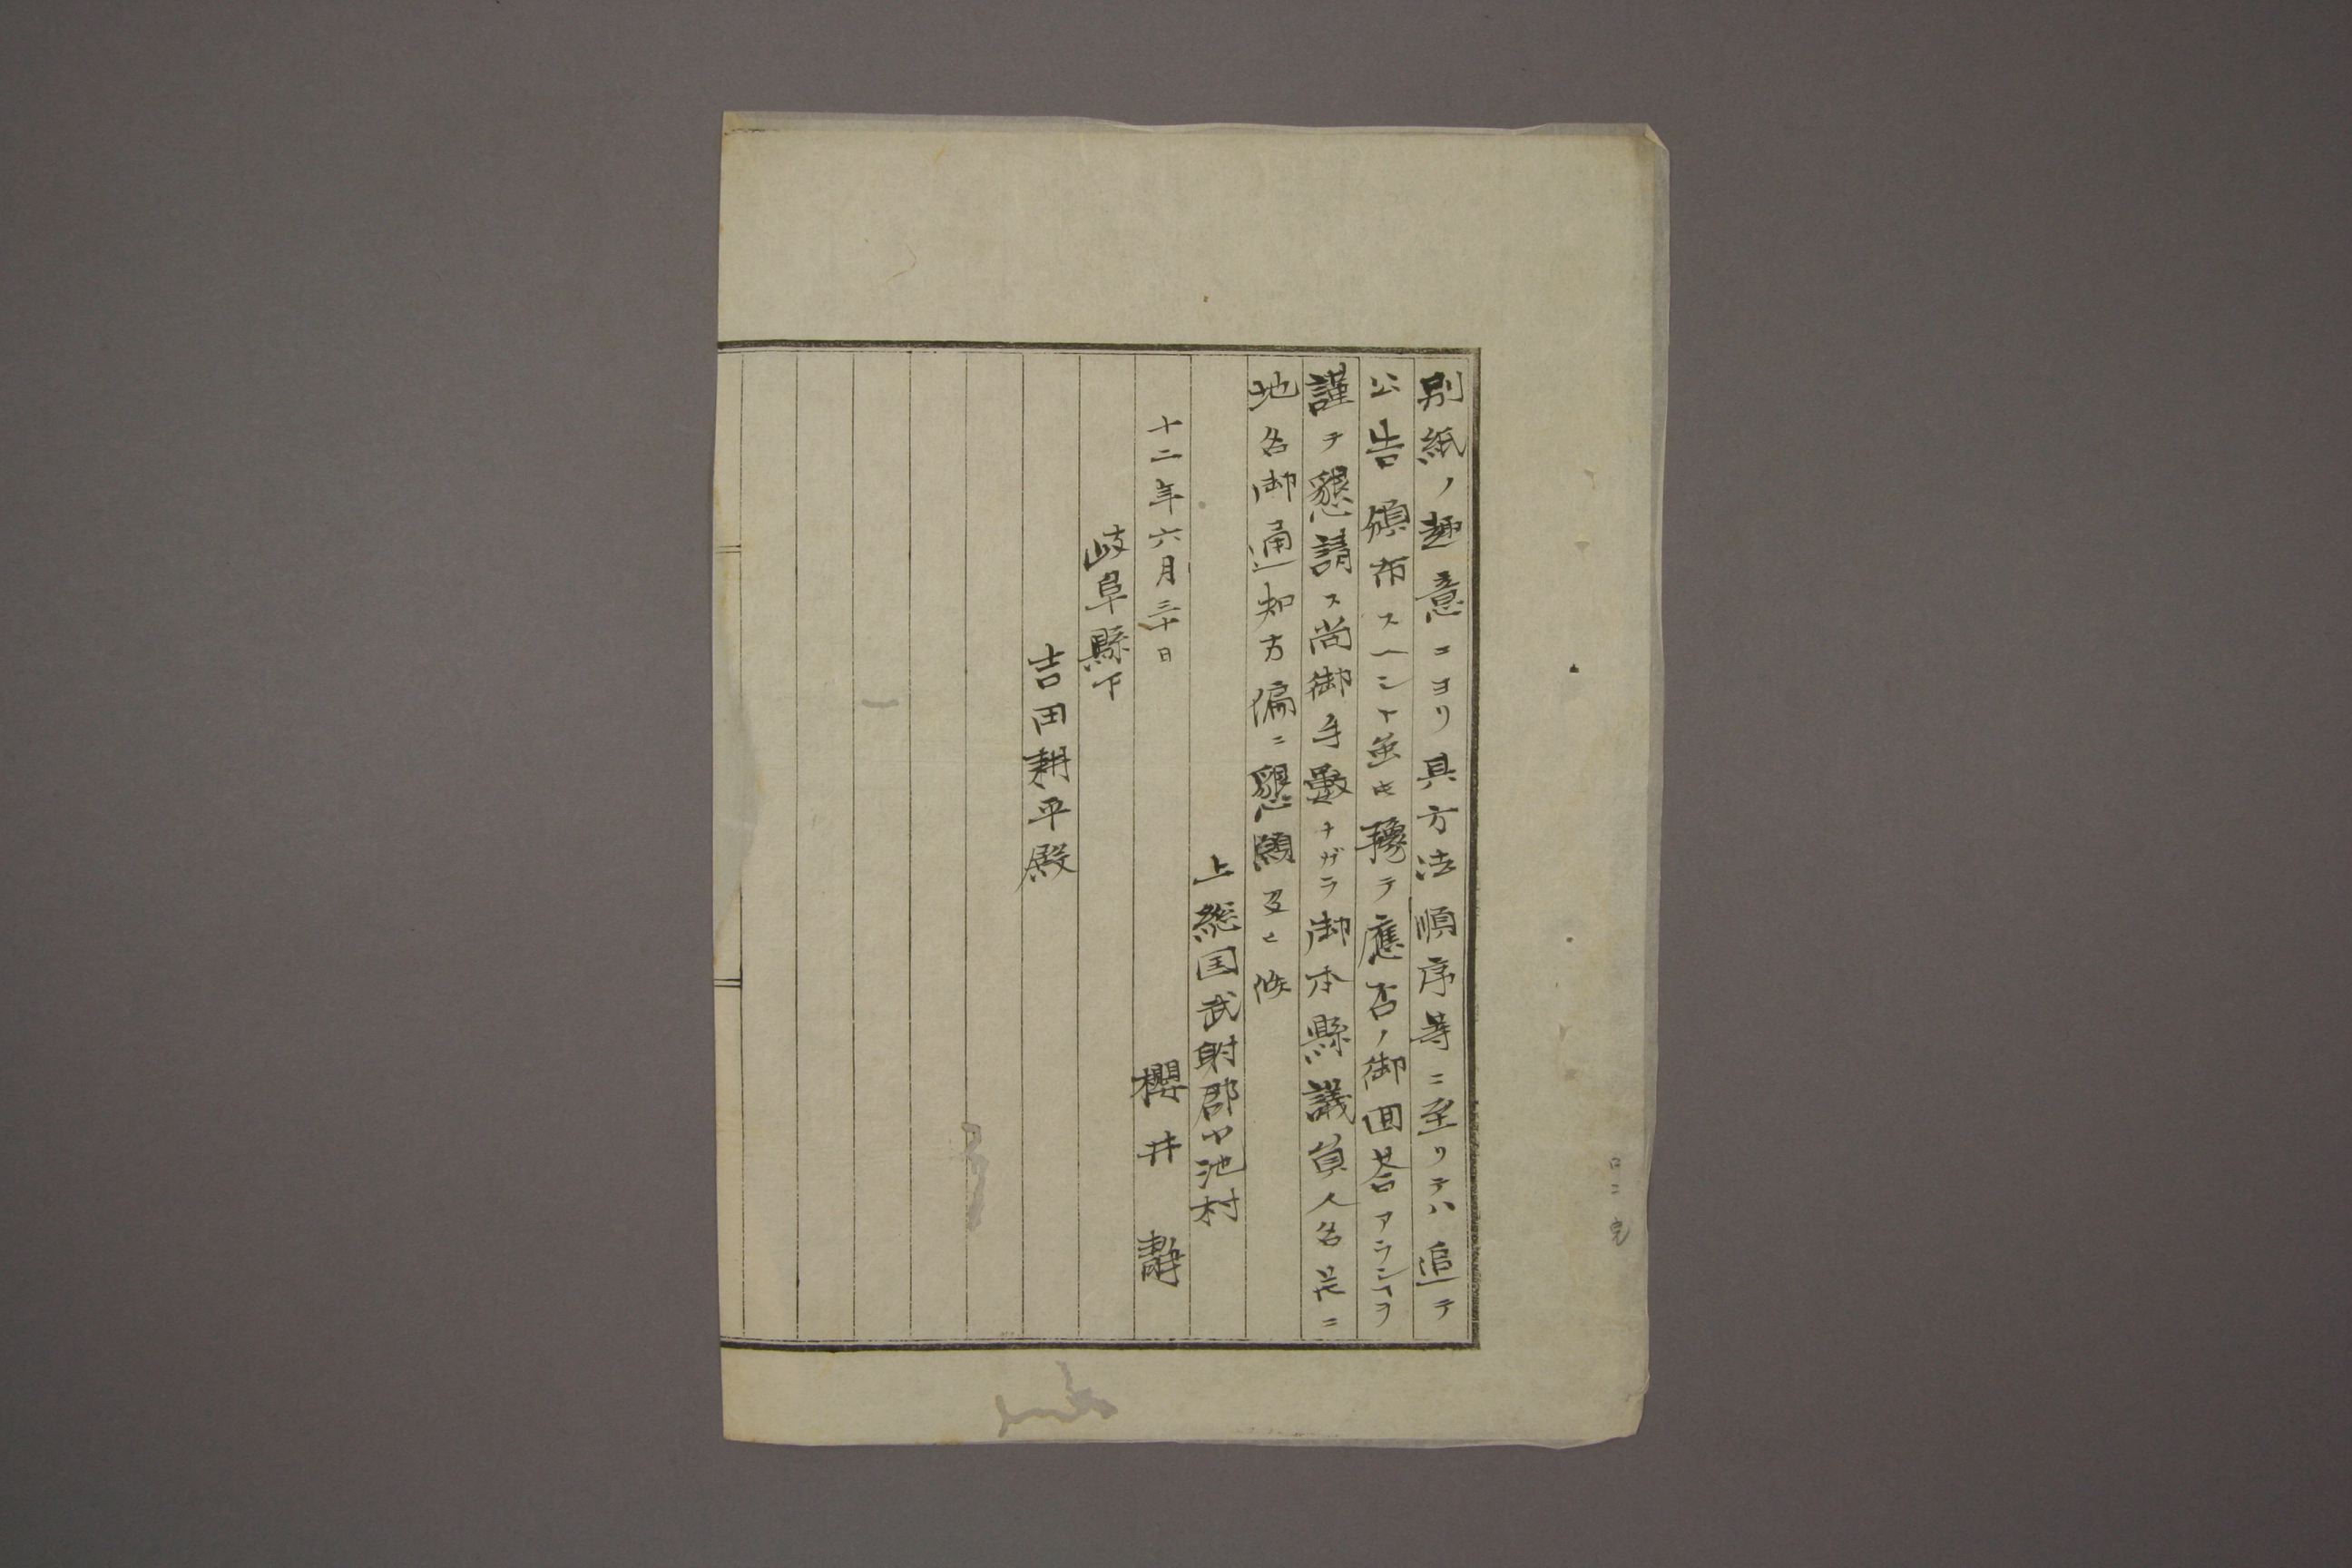 別紙ノ趣意ニヨリ具方法順序等ニ至リテハ追テ
公告頒布スヘシト雖𪜈豫テ應否ノ御回荅アランヿヲ
謹テ懇請ス尚御手數ナガラ御本縣議員人名並ニ
地名御通知方偏ニ懇願及ヒ候
上総国武射郡小池村
十二年六月三十日
櫻井靜
岐阜縣下
吉田耕平殿